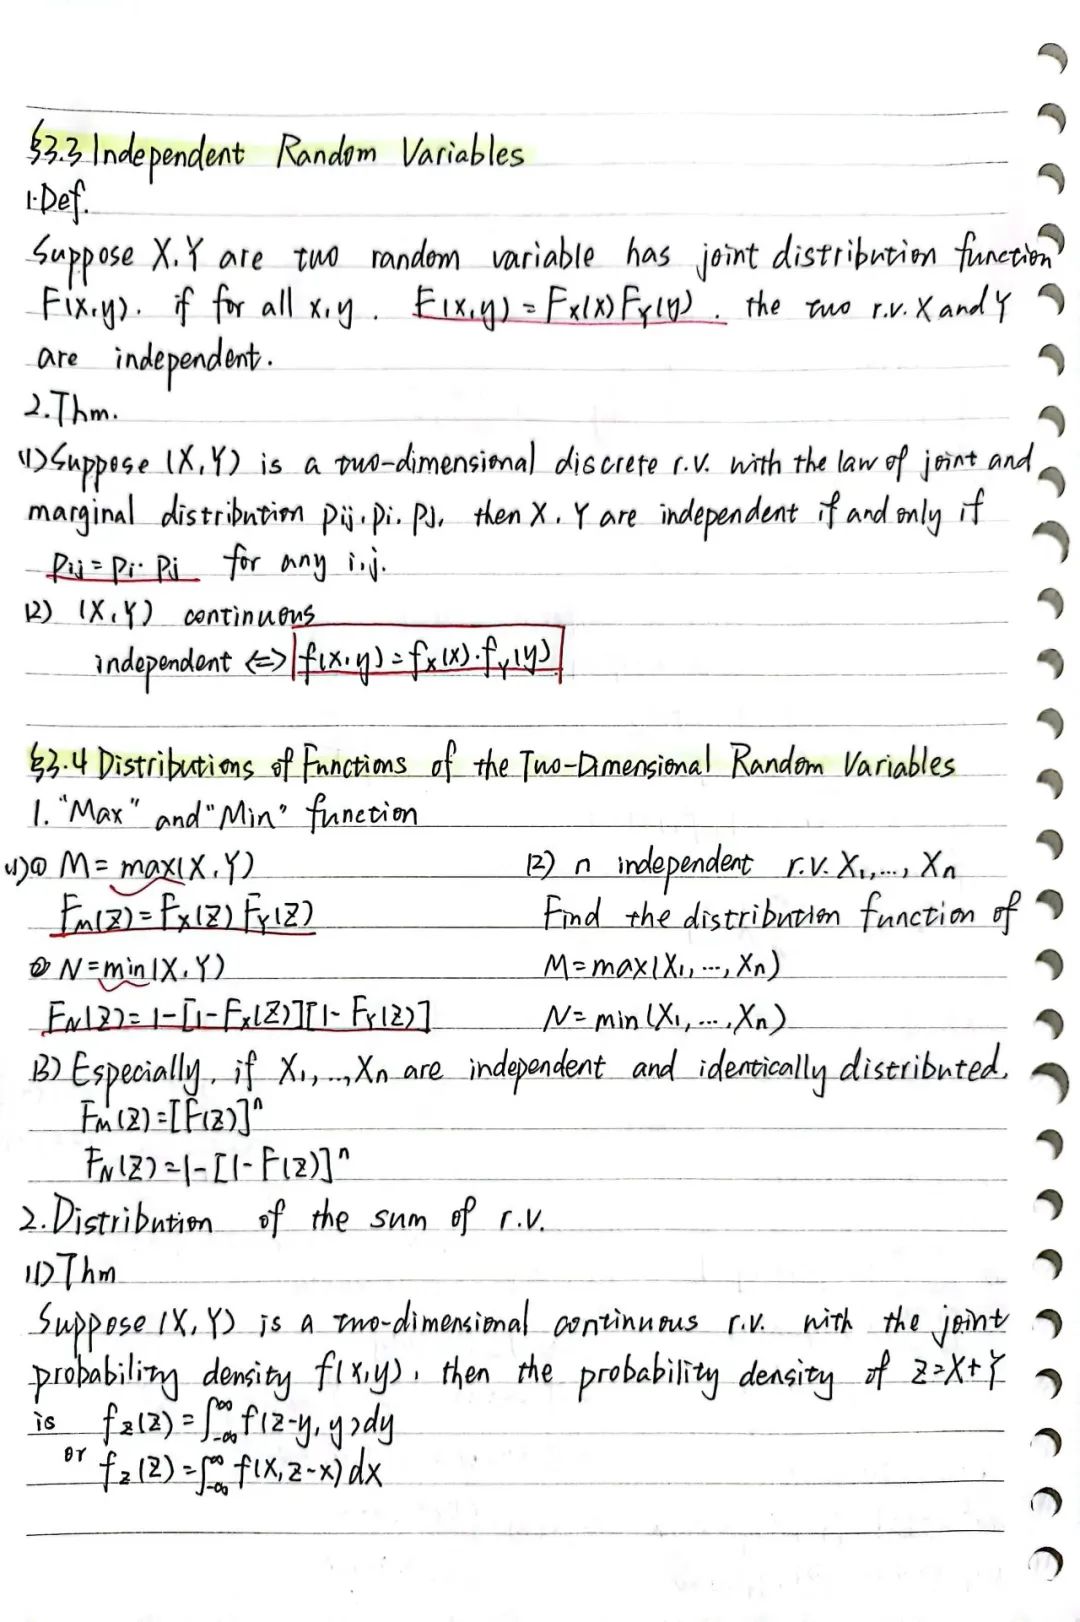 §3.3 Independent Random Variables
1. Def.
Suppose X, Y are two random variable has joint distribution function
F(x,y). if for all x,y. F(x,y) = F_X(x) F_Y(y). the two r.v. X and Y
are independent.
2. Thm.
(1) Suppose (X,Y) is a two-dimensional discrete r.v. with the law of joint and
marginal distribution pij, pi. pj, then X, Y are independent if and only if
pij = pi· pj for any i,j.
(2) (X,Y) continuous
independent <=> f(x,y) = f_X(x)·f_Y(y)
§3.4 Distributions of Functions of the Two-Dimensional Random Variables
1. "Max" and "Min" function
(1)① M = max(X,Y)
F_M(z) = F_X(z) F_Y(z)
② N = min(X,Y)
F_N(z) = 1-[1-F_X(z)][1-F_Y(z)]
(2) n independent r.v. X1,..., Xn
Find the distribution function of
M = max(X1, ..., Xn)
N = min(X1, ..., Xn)
(3) Especially, if X1,..., Xn are independent and identically distributed.
F_M(z) = [F(z)]^n
F_N(z) = 1-[1-F(z)]^n
2. Distribution of the sum of r.v.
(1) Thm
Suppose (X,Y) is a two-dimensional continuous r.v. with the joint
probability density f(x,y), then the probability density of Z=X+Y
is f_Z(z) = ∫_{-∞}^{∞} f(z-y, y)dy
or f_Z(z) = ∫_{-∞}^{∞} f(x, z-x) dx